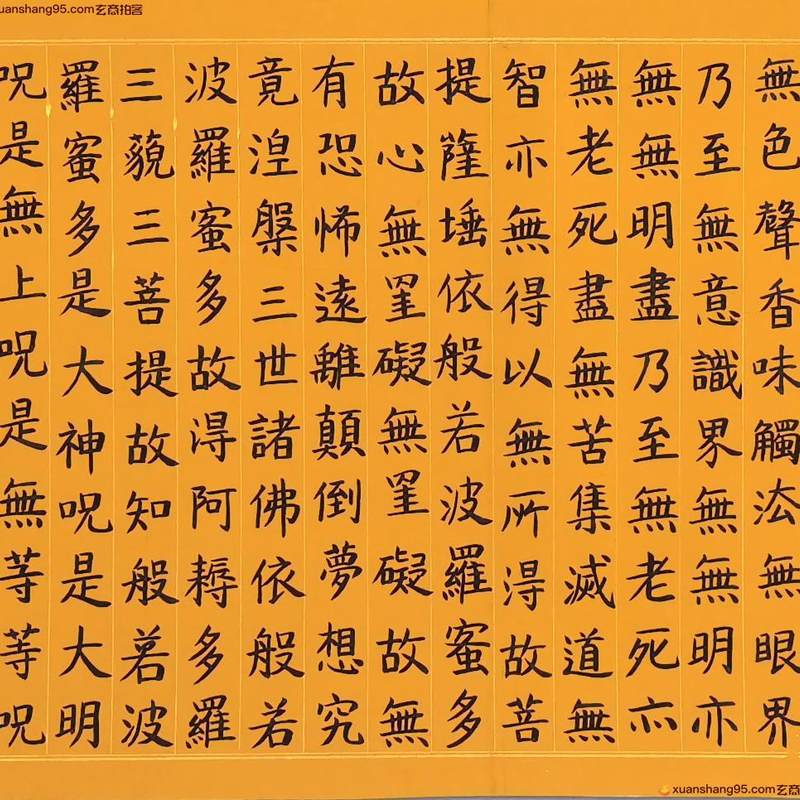 xuanshang95.com玄商拍客
無色聲香味觸法無眼界
乃至無意識界無無明亦
無無明盡乃至無老死亦
無老死盡無苦集滅道無
智亦無得以無所得故菩
提薩埵依般若波羅蜜多
故心無罣礙無罣礙故無
有恐怖遠離顛倒夢想究
竟涅槃三世諸佛依般若
波羅蜜多故得阿耨多羅
三藐三菩提故知般若波
羅蜜多是大神呪是大明
呪是無上呪是無等等呪
xuanshang95.com玄商